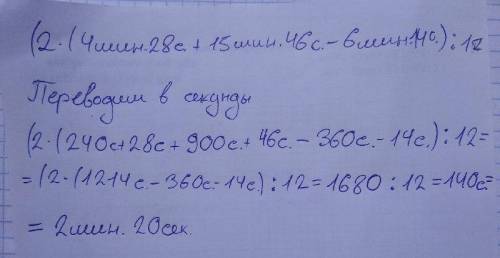 (2·(4мин.28с.+15мин.46с.-6мин.14с.):12
Переводим в секунды
(2·(240с+28с+900с.+46с.-360с.-14с.):12=
=(2·(1214с.-360с.-14с.):12=1680:12=140с.=
=2мин.20сек.